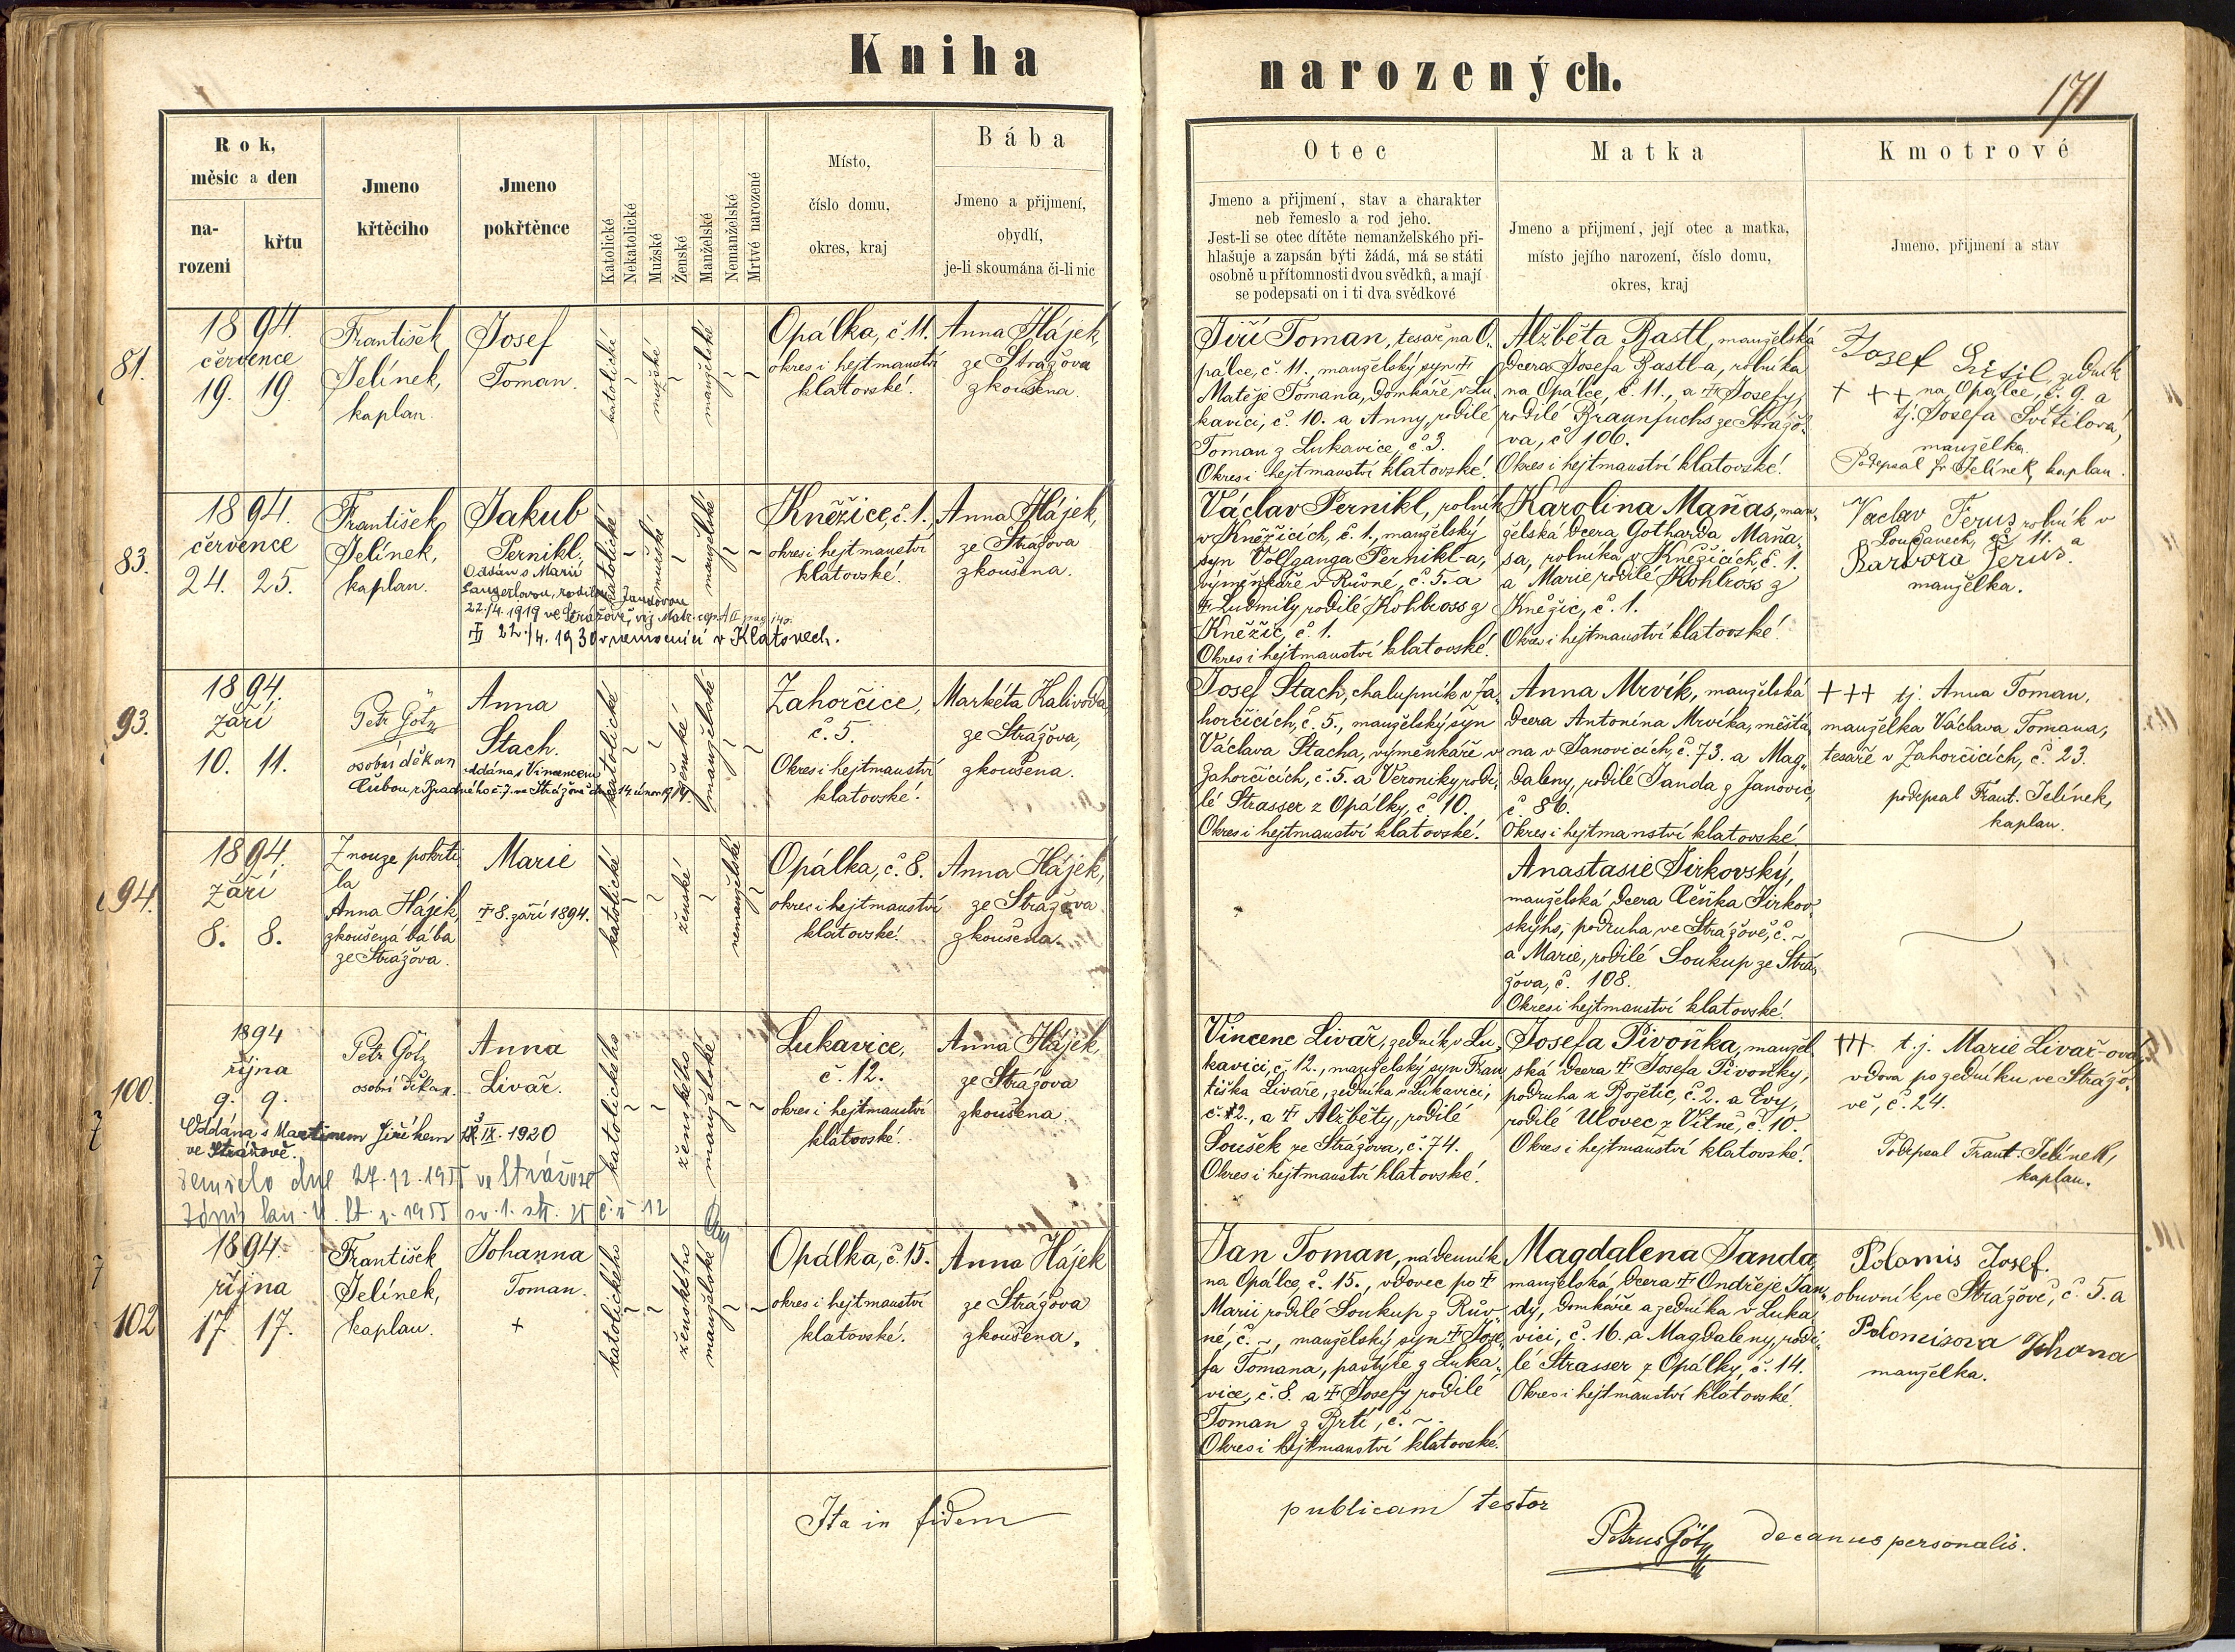 Kniha narozených.
171
Rok,
měsíc a den
na-
rození
křtu
Jmeno
křtěcího
Jmeno
pokřtěnce
Katolické
Nekatolické
Mužské
Ženské
Manželské
Nemanželské
Mrtvé narozené
Místo,
číslo domu,
okres, kraj
Bába
Jmeno a přijmení,
obydlí,
je-li skoumána či-li nic
Otec
Jmeno a přijmení, stav a charakter
neb řemeslo a rod jeho.
Jest-li se otec dítěte nemanželského při-
hlašuje a zapsán býti žádá, má se státi
osobně u přítomnosti dvou svědků, a mají
se podepsati on i ti dva svědkové
Matka
Jmeno a přijmení, její otec a matka,
místo jejího narození, číslo domu,
okres, kraj
Kmotrové
Jmeno, přijmení a stav
81.
1894.
července
19. 19.
František
Jelínek,
kaplan.
Josef
Toman.
katolické
mužské
manželské
Opálka, č. 11.
okres i hejtmanství
klatovské.
Anna Hájek,
ze Strážova
zkoušena.
Jiří Toman, tesař, na O-
pálce, č. 11., manželský syn †
Matěje Tomana, domkáře v Lu-
kavici, č. 10. a Anny, rodilé
Toman z Lukavice, č. 3.
Okres i hejtmanství klatovské.
Alžběta Bastl, manželská
dcera Josefa Bastl-a, rolníka
na Opálce, č. 11., a † Josefy,
rodilé Braunfuchs ze Strážo-
va, č. 106.
Okres i hejtmanství klatovské.
Josef zedník
+ + + na Opálce, č. 9. a
tj. Josefa Svítilová,
manželka.
Podepsal Fr. Jelínek, kaplan.
83.
1894.
července
24. 25.
František
Jelínek,
kaplan.
Jakub
Pernikl.
Oddán s Marií
rodilou Jandovou
22./4. 1919 ve Strážově, viz Matr.
† 22./4. 1930 v nemocnici v Klatovech.
katolické
mužské
manželské
Kněžice, č. 1.
okres i hejtmanství
klatovské.
Anna Hájek,
ze Strážova
zkoušena.
Václav Pernikl, rolník
v Kněžicích, č. 1., manželský
syn Volfganga Pernikl-a,
výměnkáře v Růvné, č. 5. a
† Ludmily, rodilé Kohlross z
Kněžic, č. 1.
Okres i hejtmanství klatovské.
Karolina Maňas, man-
želská dcera Gotharda Maňa-
sa, rolníka v Kněžicích, č. 1.
a Marie, rodilé Kohlross z
Kněžic, č. 1.
Okres i hejtmanství klatovské.
Vaclav Ferus, rolník v
č. 11. a
Barbora Ferus.
manželka.
93.
1894.
září
10. 11.
Petr Götz
osobní děkan
Anna
Stach.
oddána s Vincencem
Čubou, z ve Strážově dne 14. února 1919.
katolické
ženské
manželské
Zahorčice,
č. 5.
Okres i hejtmanství
klatovské.
Markéta Kalivoda
ze Strážova,
zkoušena.
Josef Stach, chalupník v Za-
horčicích, č. 5., manželský syn
Václava Stacha, výměnkáře v
Zahorčicích, č. 5. a Veroniky, rodi-
lé Strasser z Opálky, č. 10.
Okres i hejtmanství klatovské.
Anna Mrvík, manželská
dcera Antonína Mrvíka, měšťa-
na v Janovicích, č. 73. a Mag-
daleny, rodilé Janda z Janovic,
č. 86.
Okres i hejtmanství klatovské.
+++ tj. Anna Toman,
manželka Václava Tomana,
tesaře v Zahorčicích, č. 23.
podepsal Frant. Jelínek,
kaplan.
94.
1894.
září
8. 8.
Z nouze pokřti-
la
Anna Hájek,
zkoušená bába
ze Strážova.
Marie
† 8. září 1894.
katolické
ženské
nemanželské
Opálka, č. 8.
okres i hejtmanství
klatovské.
Anna Hájek,
ze Strážova
zkoušena.
Anastasie Jirkovský,
manželská dcera Čeňka Jirkov-
ského, podruha ve Strážově, č. ~
a Marie, rodilé Soukup ze Strá-
žova, č. 108.
Okres i hejtmanství klatovské.
100.
1894
října
9. 9.
Petr Götz
osobní děkan.
Anna
Livař.
Oddána s Martinem Jiříkem IX. 1920
ve Strážově.
Zemřela dne 27.12.1955 ve Strážově
Zápis 1955 sv. 1. str. č. ř. 12
katolického
ženského
manželské
Lukavice,
č. 12.
okres i hejtmanství
klatovské.
Anna Hájek,
ze Strážova
zkoušena
Vincenc Livař, zedník v Lu-
kavici, č. 12., manželský syn Fran-
tiška Livaře, zedníka v Lukavici,
č. 12., a † Alžběty, rodilé
Soušek ze Strážova, č. 74.
Okres i hejtmanství klatovské.
Josefa Pivoňka, manžel-
ská dcera † Josefa Pivoňky,
podruha z Božetic, č. 2. a Evy,
rodilé Ulovec z Vítně, č. 10.
Okres i hejtmanství klatovské.
+++ t. j. Marie Livař-ová,
vdova po zedníku ve Strážo-
vě, č. 24.
Podepsal Frant. Jelínek,
kaplan.
102
1894.
října
17. 17.
František
Jelínek,
kaplan.
Johanna
Toman.
+
katolického
ženského
manželské
Opálka, č. 15.
okres i hejtmanství
klatovské.
Anna Hájek
ze Strážova
zkoušena.
Jan Toman, nádenník
na Opálce, č. 15., vdovec po †
Marii rodilé Soukup z Rův-
né, č. ~, manželský syn † Jose-
fa Tomana, pastýře z Luka-
vice, č. 8. a † Josefy rodilé
Toman z Brtí, č. ~.
Okres i hejtmanství klatovské.
Magdalena Janda,
manželská dcera † Ondřeje Jan-
dy, domkáře a zedníka v Luka-
vici, č. 16. a Magdaleny, rodi-
lé Strasser z Opálky, č. 14.
Okres i hejtmanství klatovské.
Polomis Josef.
obuvník ve Strážově, č. 5. a
Polomisova Johana
manželka.
Ita in fidem publicam testor
Petrus Götz decanus personalis.